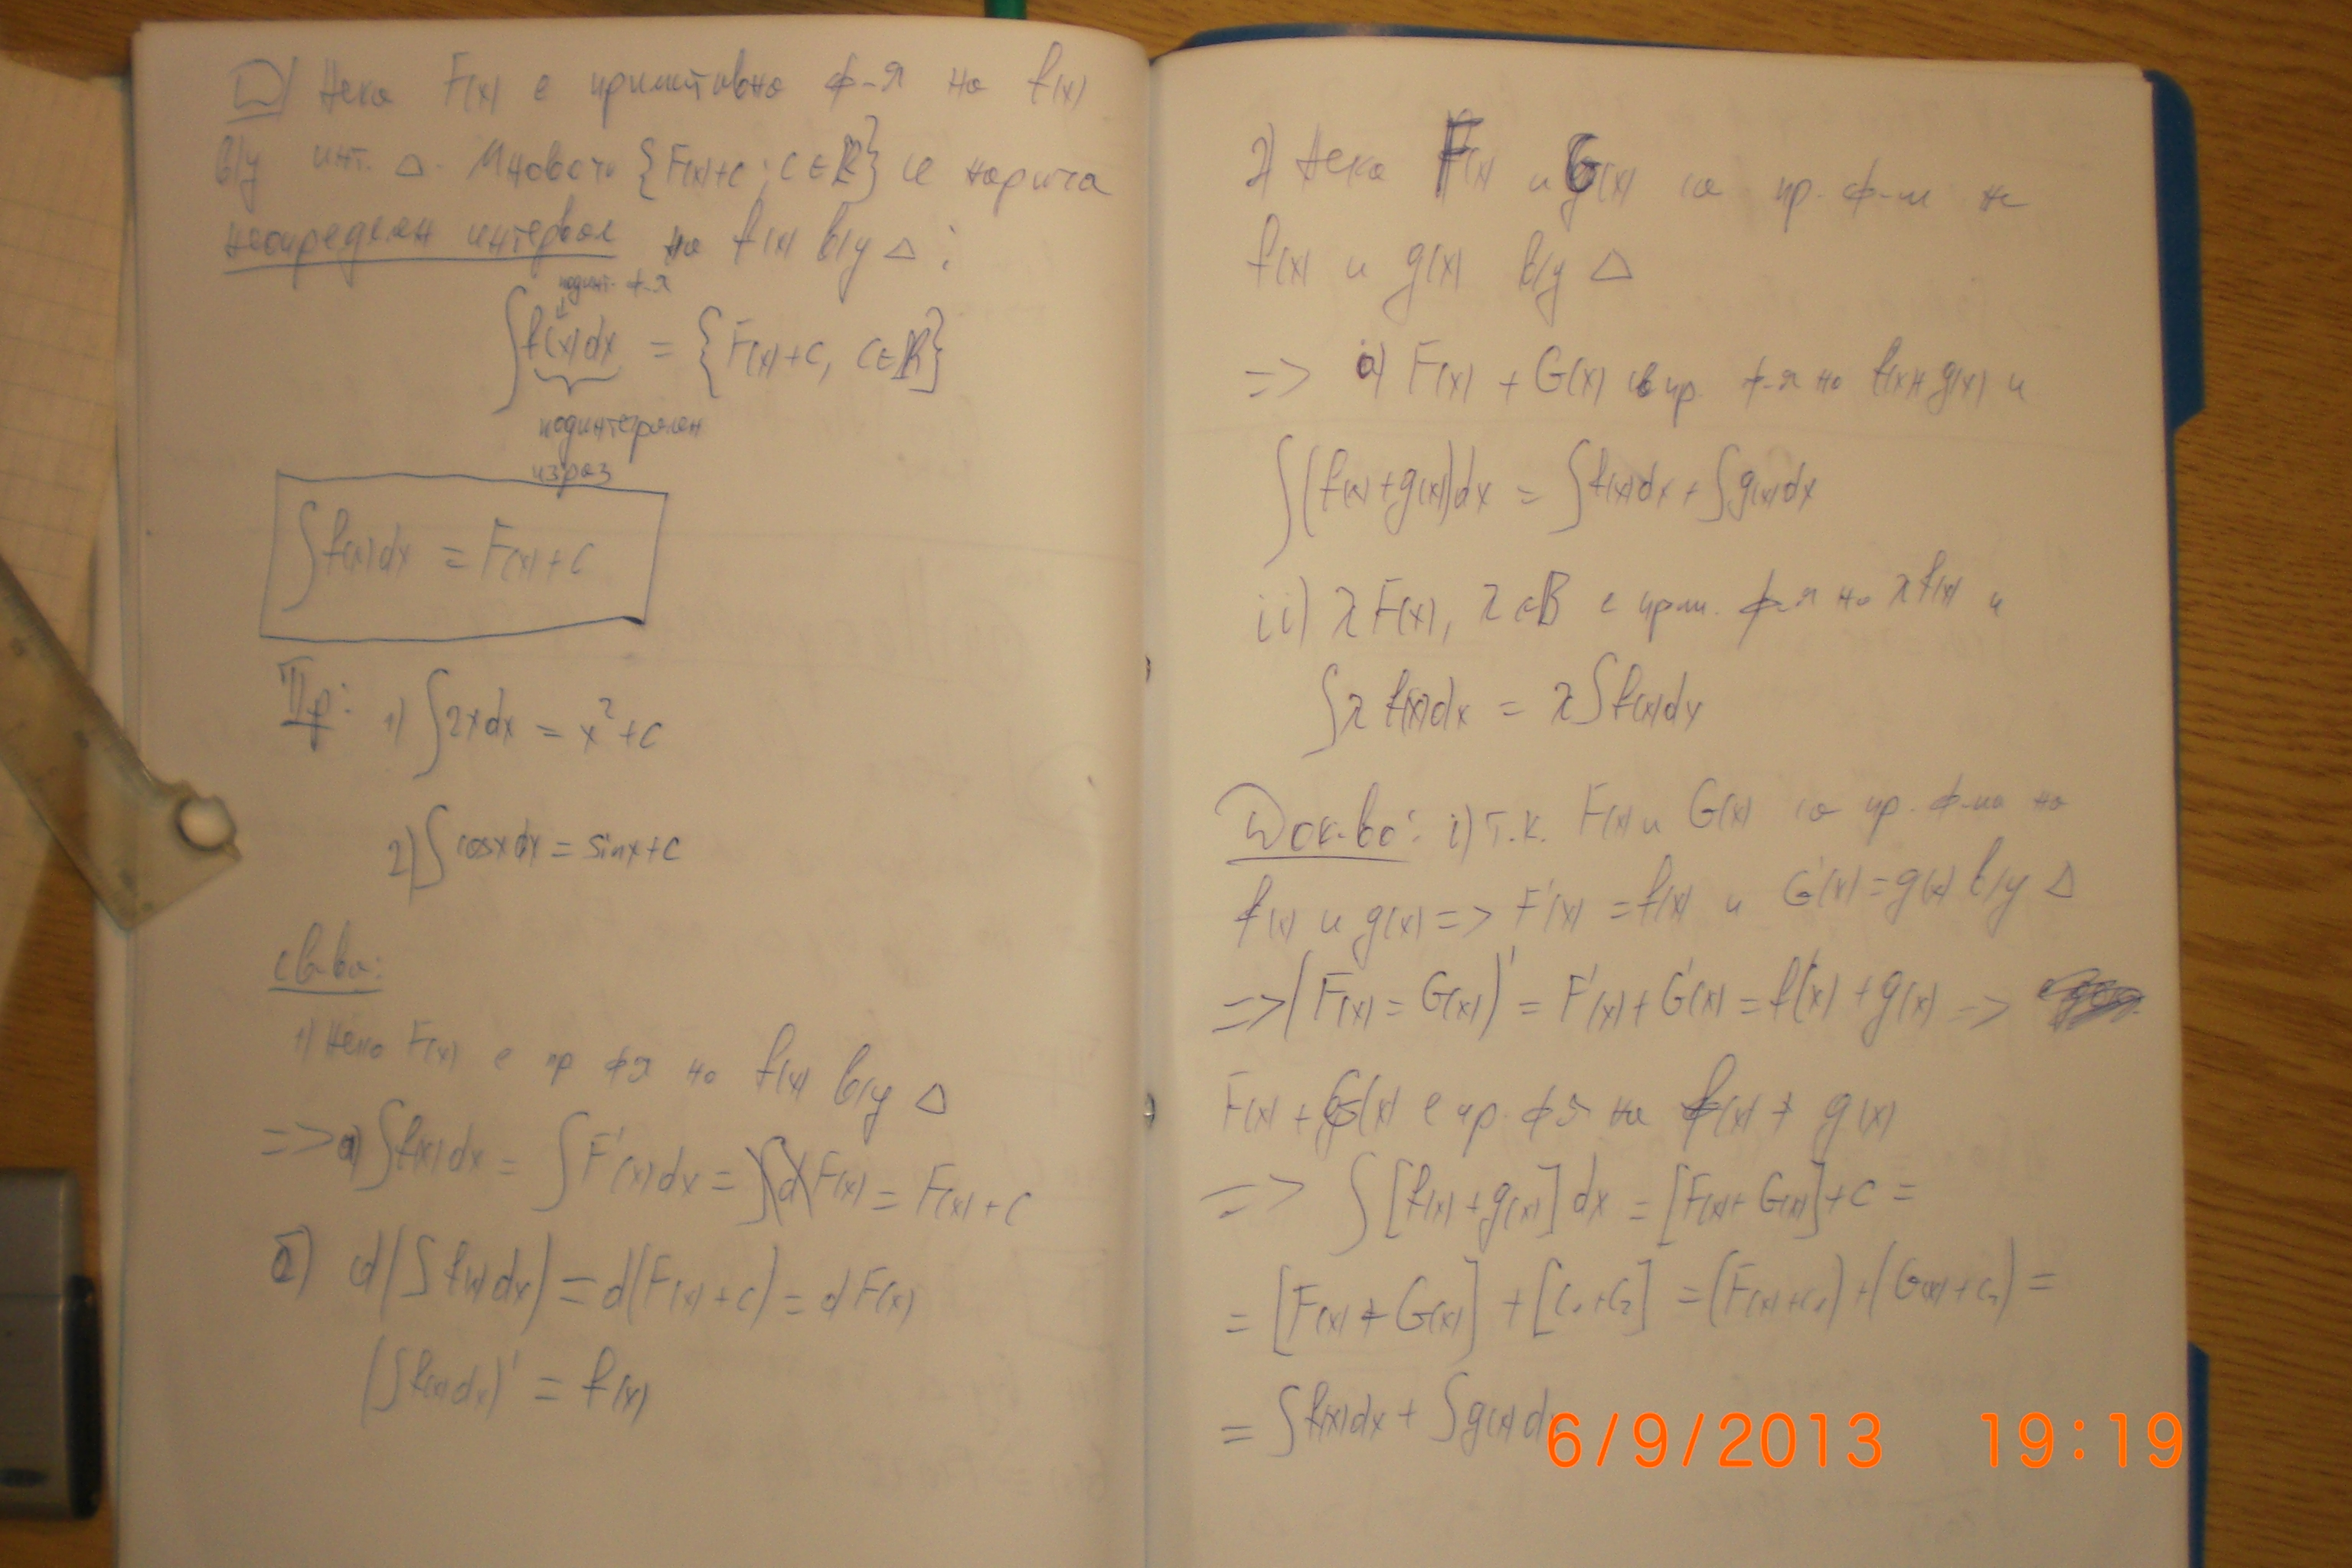 D/ Нека F(x) е примитивна ф-я на f(x)
в/у инт. Δ. Множеств {F(x)+c; c∈ℝ} се нарича
неопределен интеграл на f(x) в/у Δ:
подинт. ф-я
∫f(x)dx = {F(x)+c, c∈ℝ}
подинтегрален
израз
∫f(x)dx = F(x)+c
Пр: 1) ∫2xdx = x²+c
2) ∫cosxdx = sinx+c
св-ва:
1) Нека F(x) е пр ф-я на f(x) в/у Δ
=> а) ∫f(x)dx = ∫F'(x)dx = ∫dF(x) = F(x)+c
б) d(∫f(x)dx) = d(F(x)+c) = dF(x)
(∫f(x)dx)' = f(x)
2) Нека F(x) и G(x) са пр. ф-и на
f(x) и g(x) в/у Δ
=> а) F(x) + G(x) е пр. ф-я на f(x)+g(x) и
∫(f(x)+g(x))dx = ∫f(x)dx + ∫g(x)dx
ii) λF(x), λ∈ℝ е прим. ф-я на λf(x) и
∫λf(x)dx = λ∫f(x)dx
Док-во: i) т.к. F(x) и G(x) са пр. ф-ии на
f(x) и g(x) => F'(x) = f(x) и G'(x) = g(x) в/у Δ
=> (F(x) = G(x))' = F'(x) + G'(x) = f(x) + g(x) =>
F(x) + G(x) е пр. ф-я на f(x) + g(x)
=> ∫[f(x)+g(x)]dx = [F(x)+G(x)]+c =
= [F(x)+G(x)] + [c₁+c₂] = (F(x)+c₁)+(G(x)+c₂) =
= ∫f(x)dx + ∫g(x)d
6/9/2013 19:19